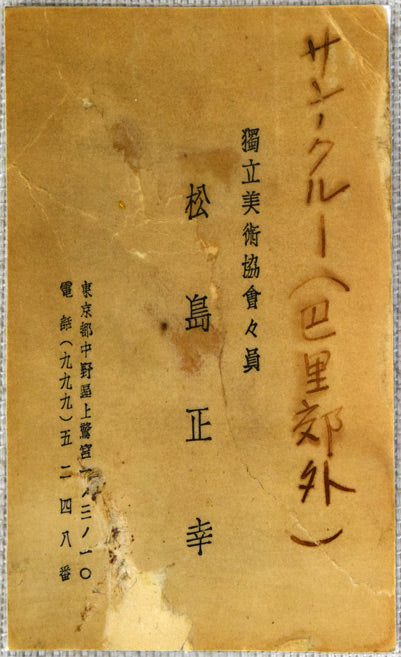 サンクルー(巴里郊外)
獨立美術協會々員
松島正幸
東京都中野區上鷺宮一ノ三ノ一〇
電話(九九九)五二四八番